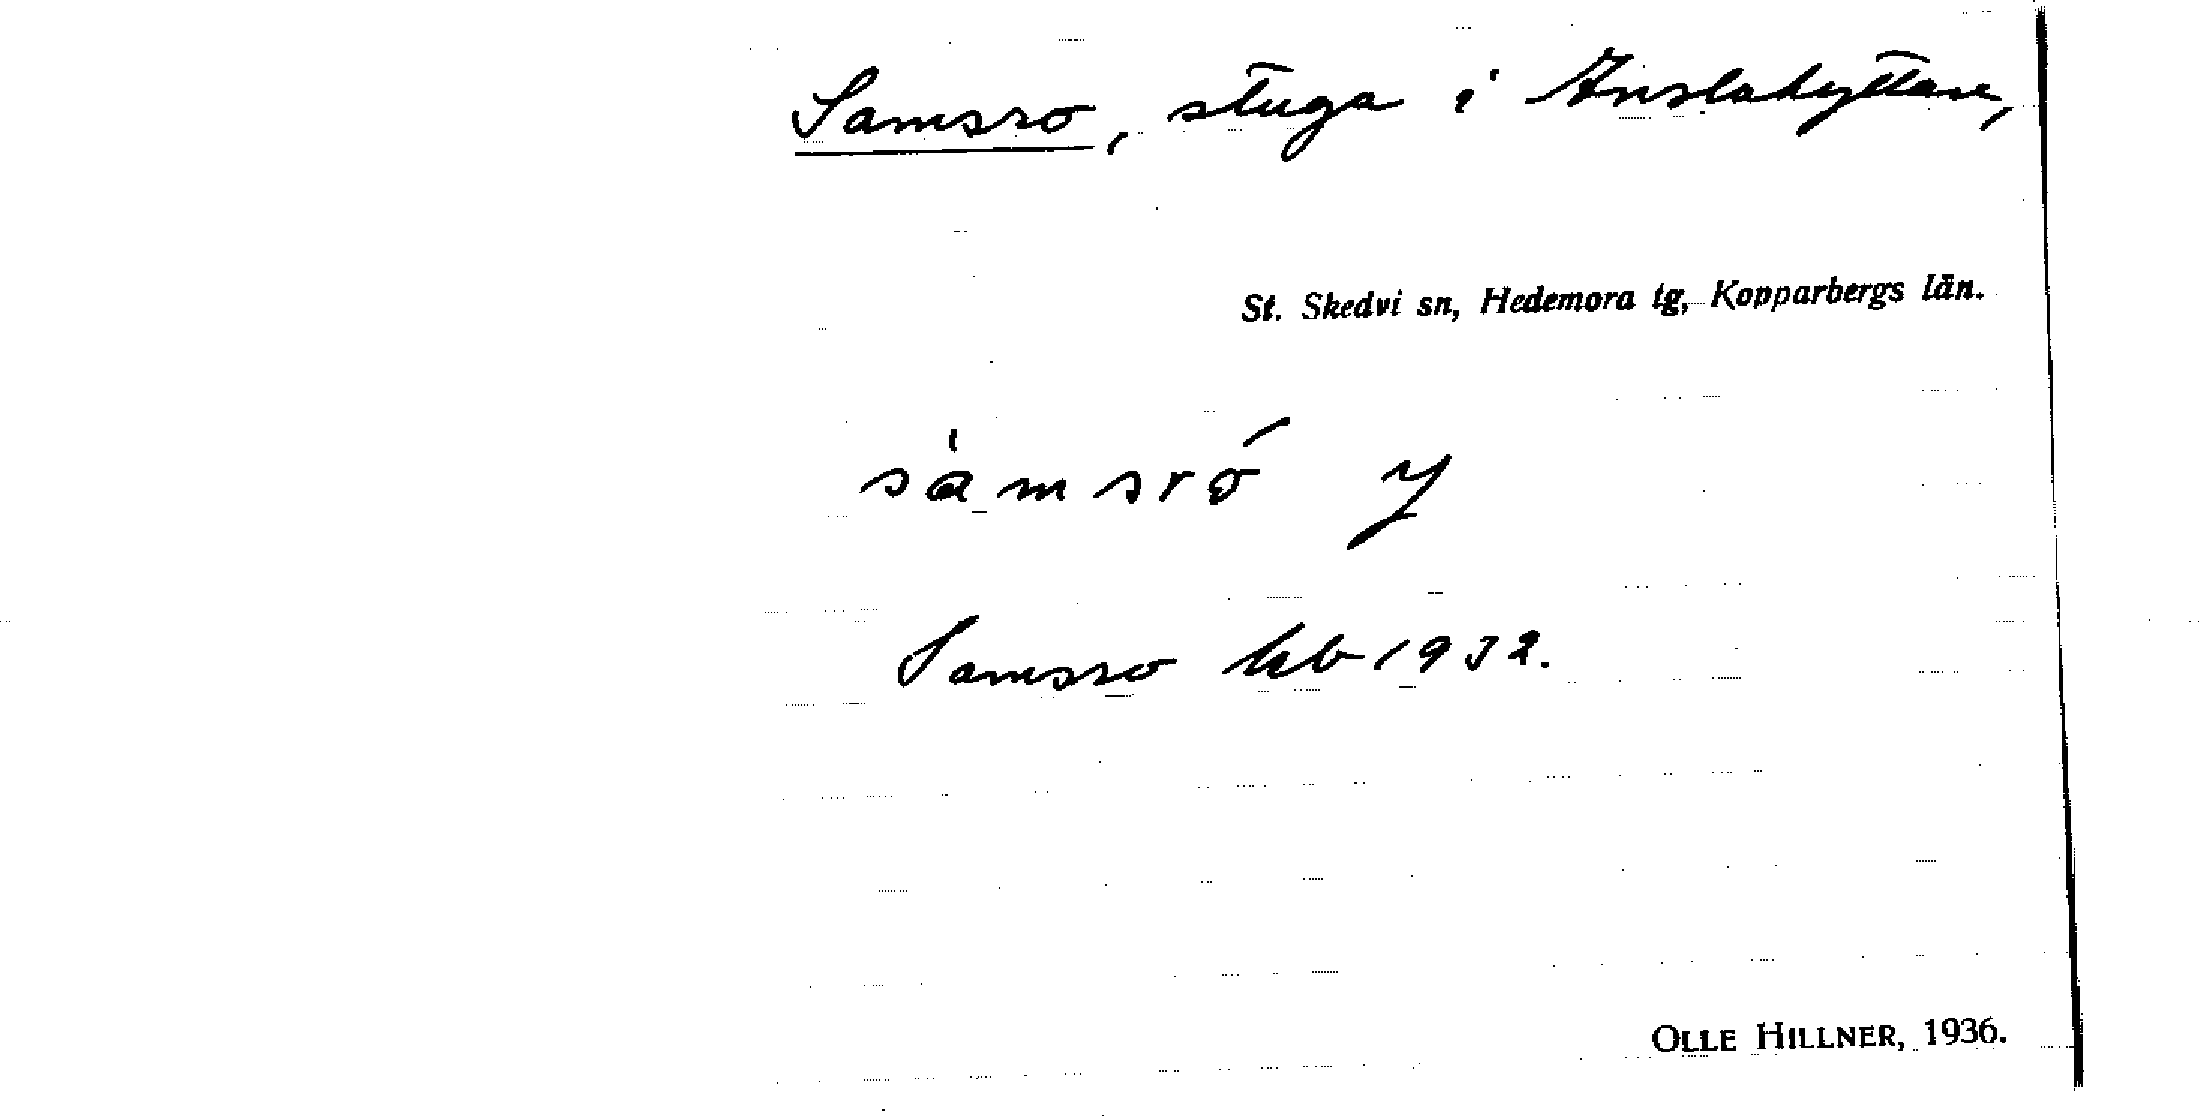 Samsro, stuga i Anslahyttan,
St. Skedvi sn, Hedemora tg, Kopparbergs län.
samsró
Samsro kb 1932.
OLLE HILLNER, 1936.